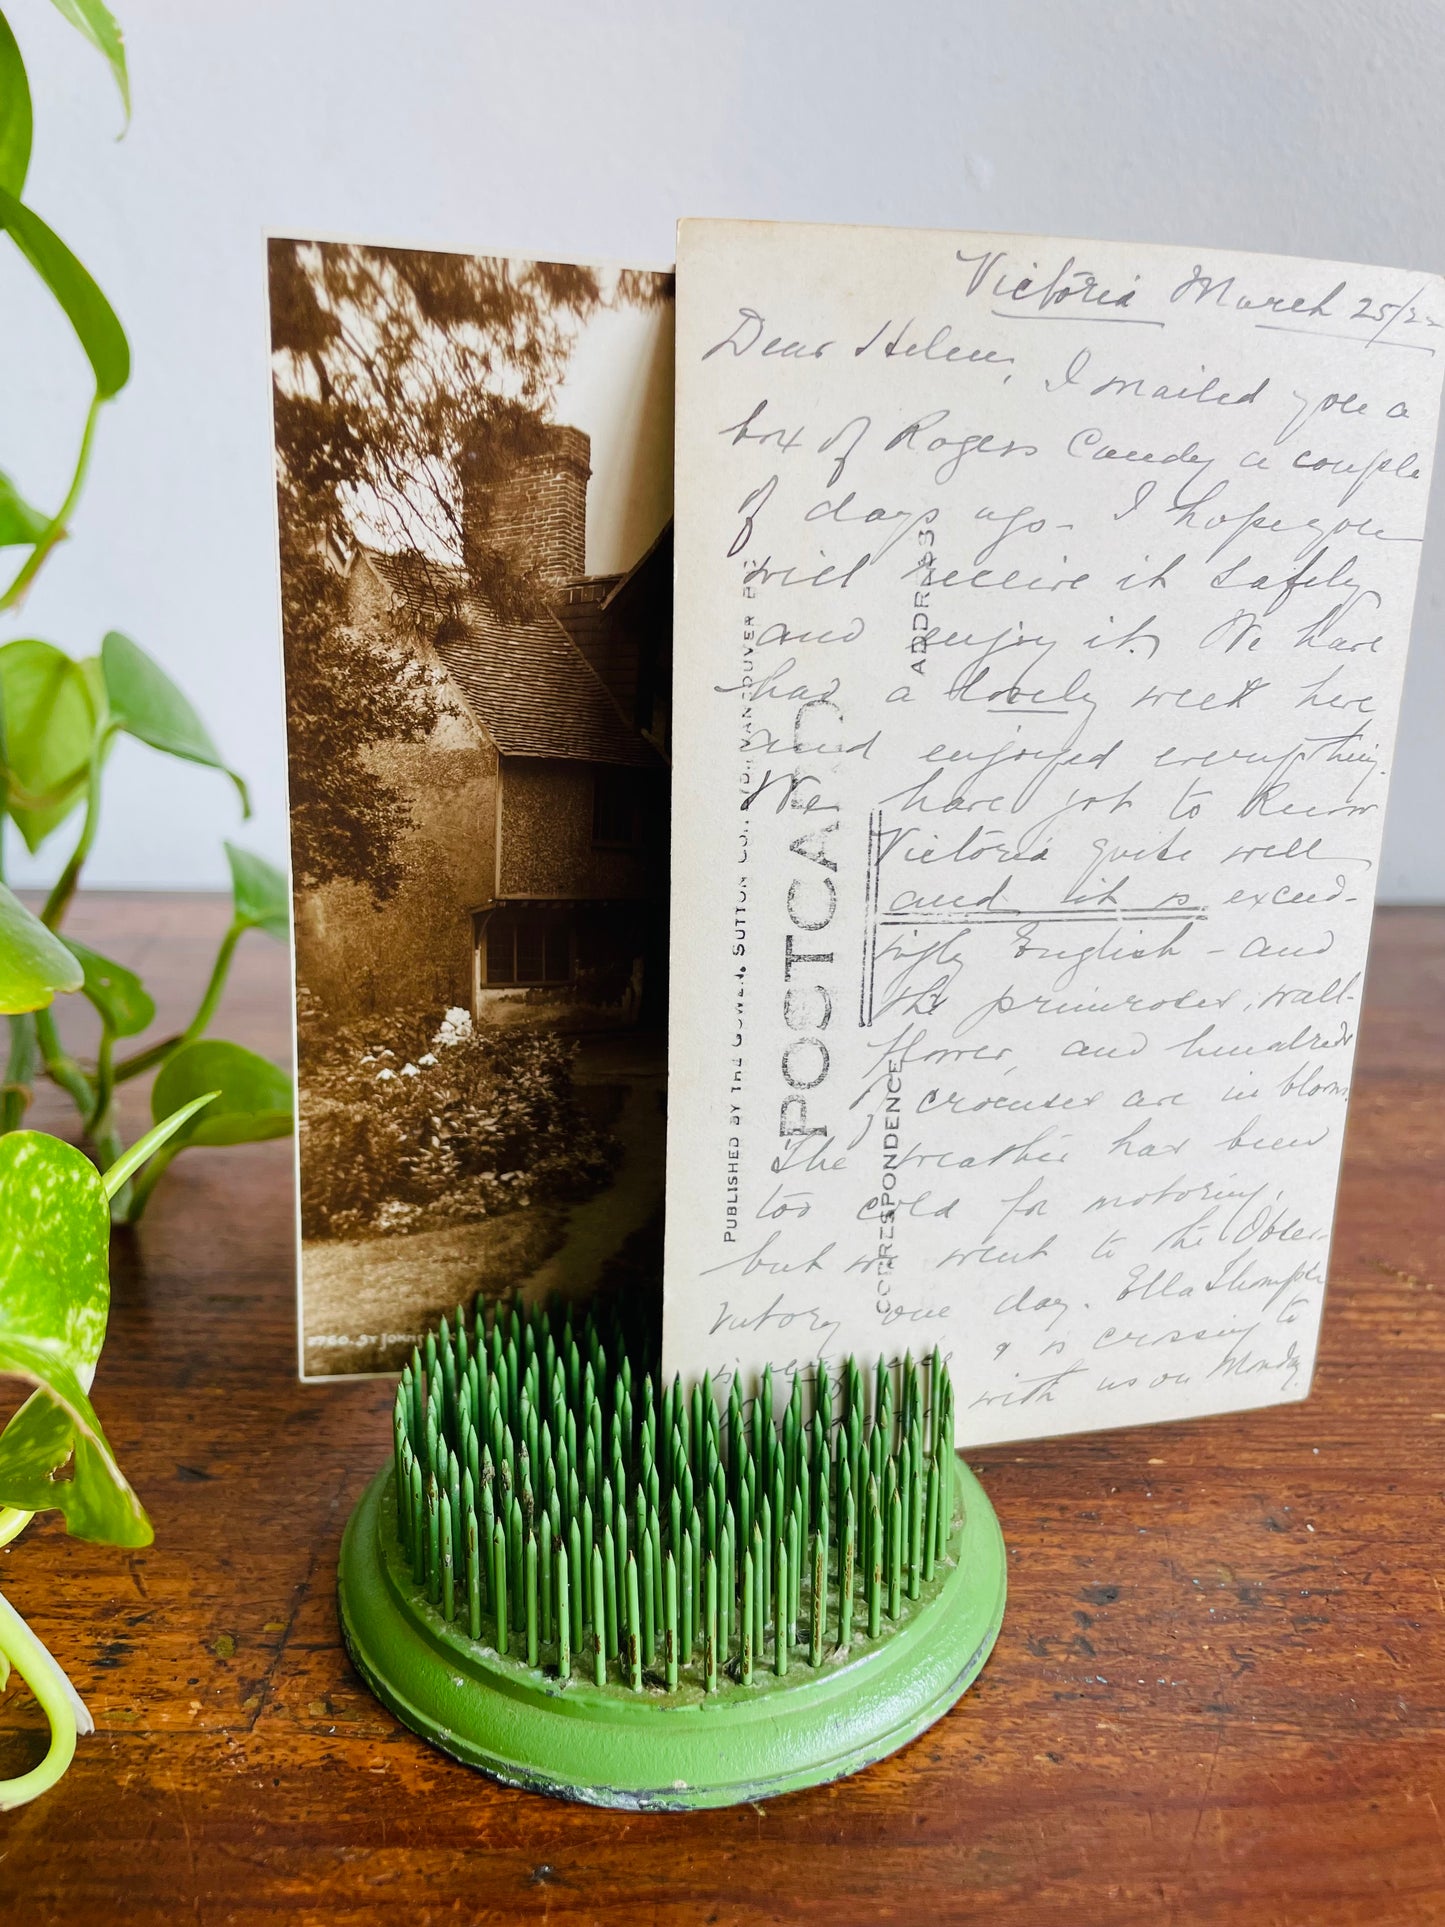 Victoria March 25/22
Dear Helen, I mailed you a
box of Rogers Candy a couple
of days ago - I hope you
will receive it safely
and enjoy it. We have
had a lovely week here
and enjoyed everything.
We have got to know
Victoria quite well
and it is exceed-
ingly English - and
the primroses, wall-
flower, and hundreds
of crocuses are in bloom.
The weather has been
too cold for motoring,
but we went to the Obser-
vatory one day. Ella Thompson
is crossing to
with us on Monday.
POSTCARD
ADDRESS
CORRESPONDENCE
PUBLISHED BY THE GOWEN, SUTTON CO. LTD. VANCOUVER B.C.
ST JOHN